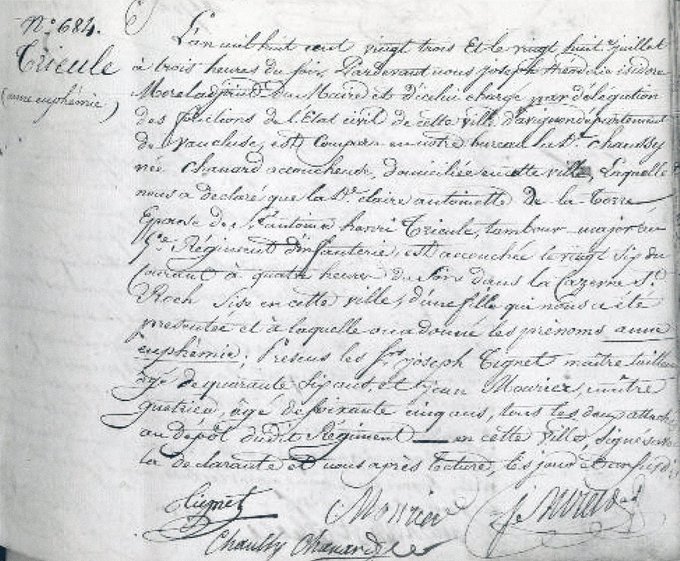 N.º 684.
Tricule
(anne euphémie)
L'an mil huit cent vingt trois et le vingt huit juillet
à trois heures du soir, Pardevant nous joseph isidore
Morel adjoint Du Maire et d'icelui chargé par délégation
des fonctions de l'Etat civil de cette ville d'avignon département
de vaucluse, est Comparu en notre bureau la D.e Chaussy
née Chanard accoucheuse, domiciliée en cette ville, Laquelle
nous a declaré que la D.e Claire antoinette de la Torre
Epouse de S.r antoine Tricule, tambour-major au
5.e Régiment d'infanterie, est accouchée le vingt six du
Courant à quatre heures du soir dans la Cazerne S.t
Roch Sise en cette ville, d'une fille qui nous a été
presentée et à laquelle on a donné les prenoms anne
euphémie; Présens les S.rs joseph Tignet maître tailleur
âgé de quarante six ans, et jean Mourier, maître
guetrier, âgé de soixante cinq ans, tous les deux attachés
au dépôt dudit Régiment en cette ville, Signés avec
la declarante et nous après lecture, les jour et an susdits
Tignet Mourier
Chaussy Chanard